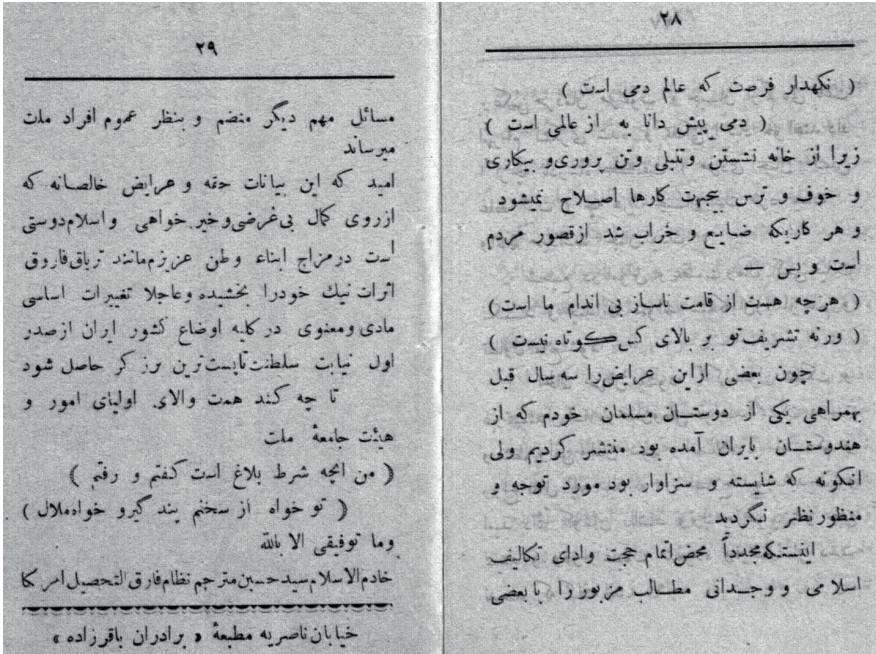 ۲۸
( نکهدار فرصت که عالم دمی است )
( دمی پیش دانا به از عالمی است )
زیرا از خانه نشستن وتنبلی وتن پروری و بیکاری
و خوف و ترس بیجهت کارها اصلاح نمیشود
و هر کاریکه ضایع و خراب شد ازقصور مردم
است و بس —
( هرچه هست از قامت ناساز بی اندام ما است )
( ورنه تشریف تو بر بالای کس کوتاه نیست )
چون بعضی ازاین عرایض را سه سال قبل
بهمراهی یکی از دوستان مسلمان خودم که از
هندوستان بایران آمده بود منتشر کردیم ولی
انکونه که شایسته و سزاوار بود مورد توجه و
منظور نظر نگردید
اینستکه مجدداً محض اتمام حجت وادای تکالیف
اسلامی و وجدانی مطالب مزبور را با بعضی
۲۹
مسائل مهم دیگر منضم و بنظر عموم افراد ملت
میرساند
امید که این بیانات حقه و عرایض خالصانه که
ازروی کمال بی غرضی وخیر خواهی واسلام دوستی
است درمزاج ابناء وطن عزیزم مانند تریاق فاروق
اثرات نیك خودرا بخشیده وعاجلا تغییرات اساسی
مادی ومعنوی در کلیه اوضاع کشور ایران ازصدر
اول نیابت سلطنت تا پست ترین برزکر حاصل شود
تا چه کند همت والای اولیای امور و
هیئت جامعهٔ ملت
( من انچه شرط بلاغ است کفتم و رفتم )
( تو خواه از سخنم پند گیرو خواه ملال )
وما توفیقی الا بالله
خادم الاسلام سید حسین مترجم نظام فارق التحصیل امریکا
خیابان ناصریه مطبعهٔ « برادران باقرزاده »